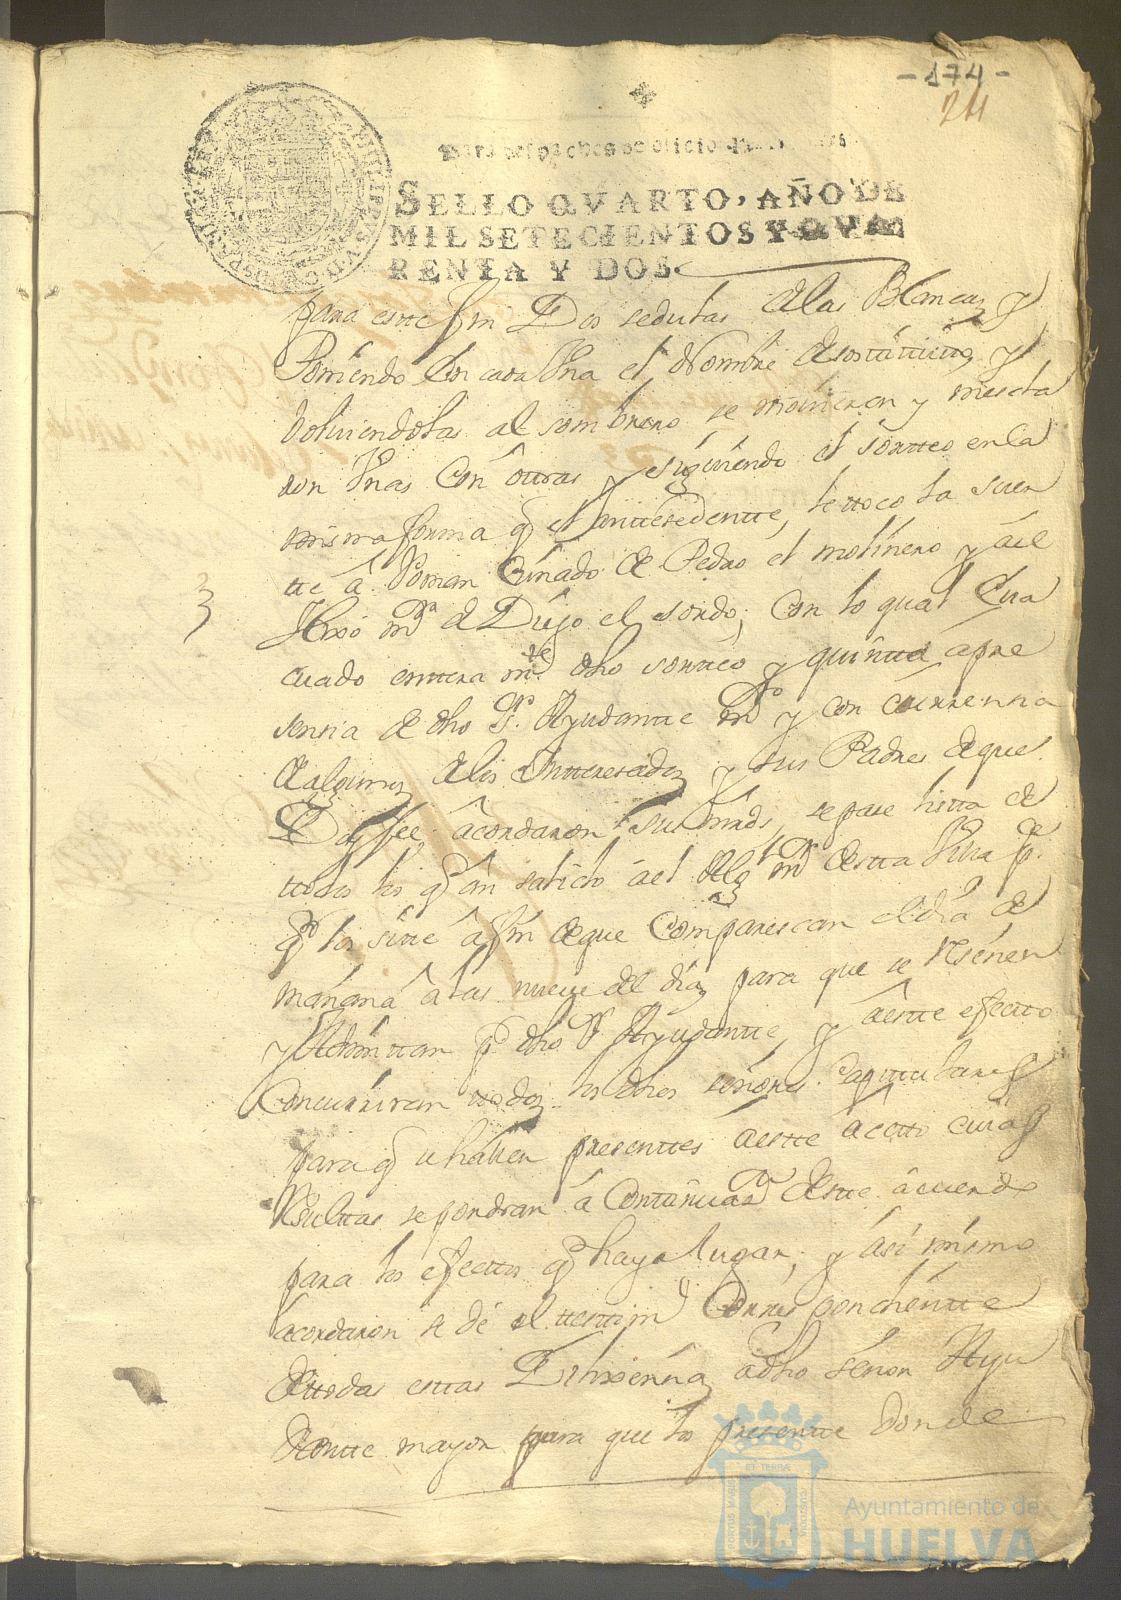 -174-
24
Para despachos de oficio
SELLO QVARTO, AÑO DE
MIL SETECIENTOS Y QVA
RENTA Y DOS
para este fin Dos sedulas de las Blancas y
Poniendo en cada Una el Nombre y
bolviendolas al sombrero se movieron y mescla
ron Unas con otras y siguiendo el sorteo en la
misma forma q el antesedentte, le toco la suer
tte a Roman Criado de Pedro el molinero y
Hixo de el sordo; con lo qual
cuado dho sortteo y quintta a pre
sensia de dho Sr. Ayudantte Mr y con
de algunos de los Intteresados y sus Padres de que
Doy fee, acordaron sus mrds, se pase lista de
ttodos los q an salido a el Alg mr de esta Villa pa
q los sitte a fin de que Comparescan el dia de
mañana a las nueve del dia, para que se Reseñen
y Admittan pr dho Sr Ayudantte, y a estte efectto
Concurriran ttodos los dhos señores Capittulares
para q se hallen presenttes a estte actto cuias
Resulttas se pondran a Continuazn de estte acuerdo
para los efecttos q haya lugar; y asi mismo
acordaron se dé el ttesttim Correspondientte
de ttodas esttas Dilixencias a dho señor Ayu
dantte mayor para que los presentte donde
ET TERRÆ
PORTUS MARIS
CUSTODIA
Ayuntamiento de
HUELVA